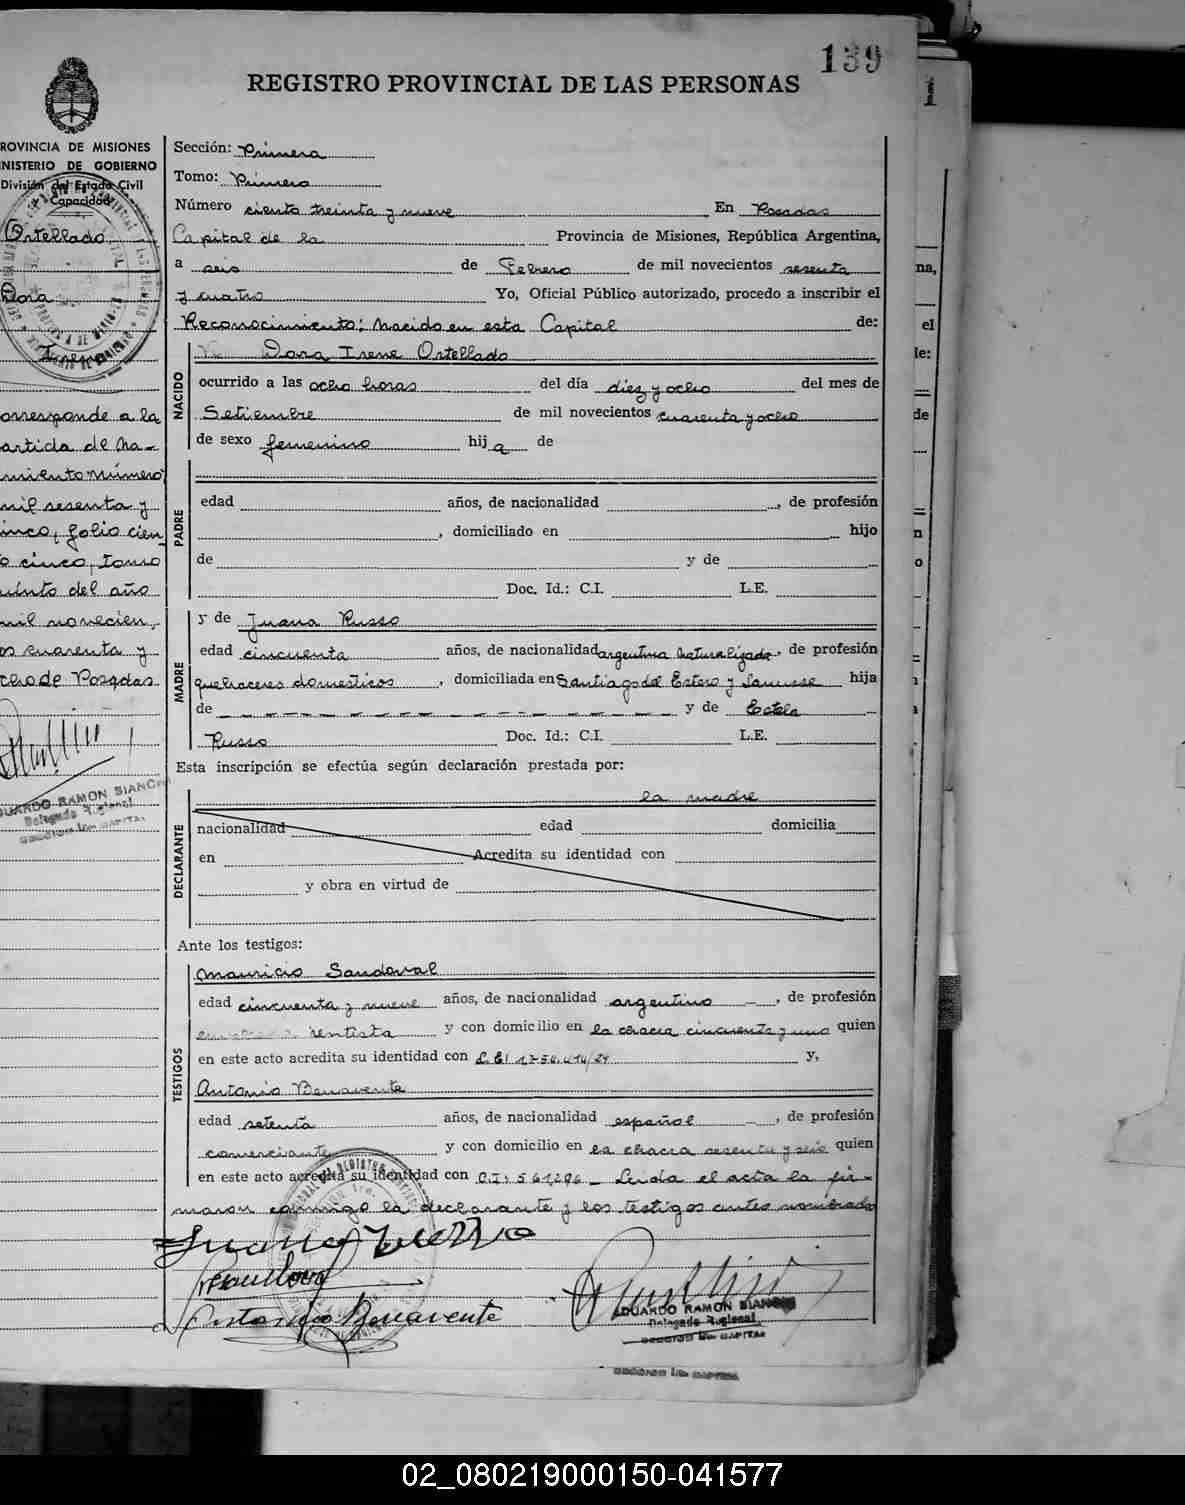 139
REGISTRO PROVINCIAL DE LAS PERSONAS
ROVINCIA DE MISIONES
NISTERIO DE GOBIERNO
División del Estado Civil
Capacidad
Ortellado
Dora
Irene
orresponde a la
artida de na-
miento número
mil sesenta y
inco, folio cien
o cinco, tomo
uinto del año
mil novecien,
os cuarenta y
cho de Posadas
EDUARDO RAMON BIANCHI
Delegado Regional
SECCION 1ra. CAPITAL
Sección: Primera
Tomo: Primero
Número ciento treinta y nueve En Posadas
Capital de la Provincia de Misiones, República Argentina,
a seis de Febrero de mil novecientos sesenta
y cuatro Yo, Oficial Público autorizado, procedo a inscribir el
Reconocimiento: Nacido en esta Capital de:
NACIDO
Dora Irene Ortellado
ocurrido a las ocho horas del día diez y ocho del mes de
Setiembre de mil novecientos cuarenta y ocho
de sexo femenino hija de
PADRE
edad años, de nacionalidad , de profesión
, domiciliado en hijo
de y de
Doc. Id.: C.I. L.E.
MADRE
y de Juana Russo
edad cincuenta años, de nacionalidad argentina naturalizada, de profesión
quehaceres domesticos, domiciliada en Santiago del Estero y Sarusse hija
de y de Estela
Russo Doc. Id.: C.I. L.E.
Esta inscripción se efectúa según declaración prestada por:
DECLARANTE
la madre
nacionalidad edad domicilia
en Acredita su identidad con
y obra en virtud de
Ante los testigos:
TESTIGOS
Mauricio Sandoval
edad cincuenta y nueve años, de nacionalidad argentino, de profesión
rentista y con domicilio en la chacra cincuenta y uno quien
en este acto acredita su identidad con L.E. y,
Antonio Benavente
edad setenta años, de nacionalidad español, de profesión
comerciante y con domicilio en la chacra sesenta y seis quien
en este acto acredita su identidad con C.I. 561,296 - Leida el acta la fir-
maron conmigo la declarante y los testigos antes nombrados
Juana Russo
Sandoval
Antonio Benavente
EDUARDO RAMON BIANCHI
Delegado Regional
SECCION 1ra. CAPITAL
SECCION 1ra. CAPITAL
na,
el
le:
de
n
o
02_080219000150-041577